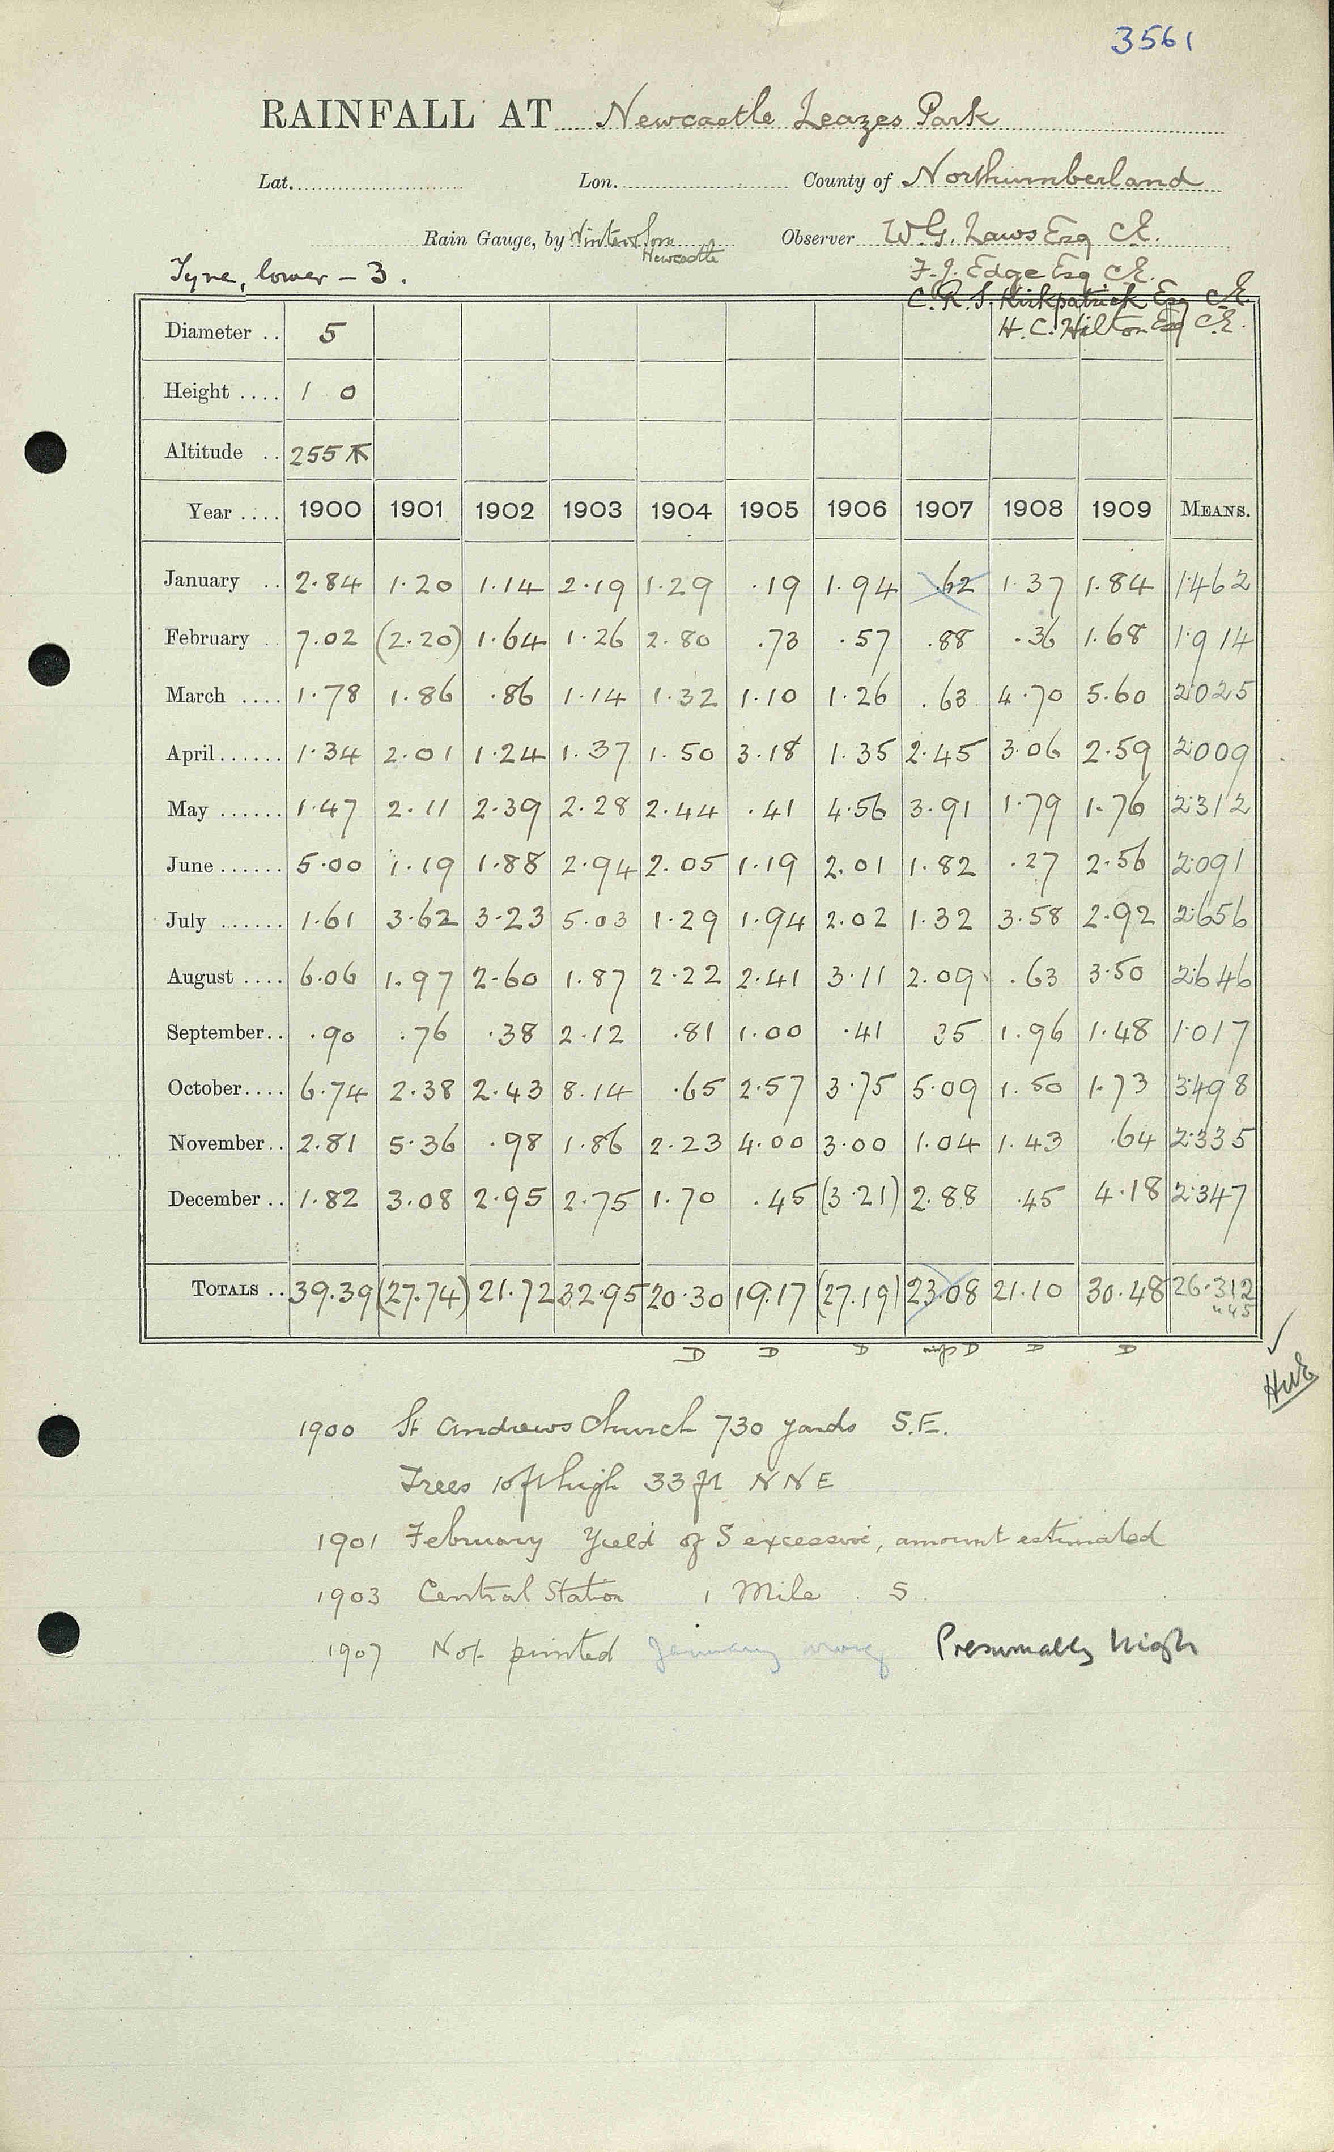 3561
RAINFALL AT Newcastle Leazes Park
Lat. Lon. County of Northumberland
Rain Gauge, by Winter & Son Newcastle Observer W.G. Laws Esq C.E.
Tyne, lower - 3. F.J. Edge Esq C.E.
C.R.S. Kirkpatrick Esq C.E.
H.C. Hilton Esq C.E.
Diameter .. 5
Height .... 1 0
Altitude .. 255 ft
Year .... 1900 1901 1902 1903 1904 1905 1906 1907 1908 1909 MEANS.
January .. 2.84 1.20 1.14 2.19 1.29 .19 1.94 .62 1.37 1.84 1.462
February .. 7.02 (2.20) 1.64 1.26 2.80 .73 .57 .88 .36 1.68 1.914
March .... 1.78 1.86 .86 1.14 1.32 1.10 1.26 .63 4.70 5.60 2.025
April...... 1.34 2.01 1.24 1.37 1.50 3.18 1.35 2.45 3.06 2.59 2.009
May ...... 1.47 2.11 2.39 2.28 2.44 .41 4.56 3.91 1.79 1.76 2.312
June ...... 5.00 1.19 1.88 2.94 2.05 1.19 2.01 1.82 .27 2.56 2.091
July ...... 1.61 3.62 3.23 5.03 1.29 1.94 2.02 1.32 3.58 2.92 2.656
August .... 6.06 1.97 2.60 1.87 2.22 2.41 3.11 2.09 .63 3.50 2.646
September.. .90 .76 .38 2.12 .81 1.00 .41 35 1.96 1.48 1.017
October.... 6.74 2.38 2.43 8.14 .65 2.57 3.75 5.09 1.50 1.73 3.498
November.. 2.81 5.36 .98 1.86 2.23 4.00 3.00 1.04 1.43 .64 2.335
December .. 1.82 3.08 2.95 2.75 1.70 .45 (3.21) 2.88 .45 4.18 2.347
TOTALS .. 39.39 (27.74) 21.72 32.95 20.30 19.17 (27.19) 23.08 21.10 30.48 26.312
D D D D D D
1900 St Andrews Church 730 yards S.E.
Trees 10 ft high 33 ft NNE
1901 February Yield of S excessive, amount estimated
1903 Central Station 1 Mile S.
1907 Not printed January wrong Presumably high